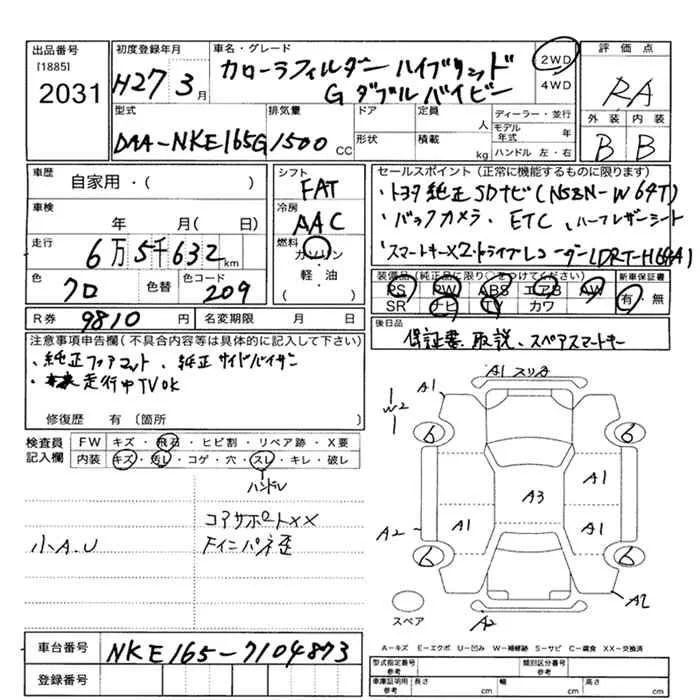 出品番号
[1885]
2031
初度登録年月
H27 3月
車名・グレード
カローラフィルダー ハイブリッド
G ダブルバイビー
2WD
4WD
評価点
RA
外装 内装
B B
型式
DAA-NKE165G
排気量
1500 CC
ドア
形状
定員 人
積載 kg
ディーラー・並行
モデル年式 年
ハンドル 左・右
車歴
自家用・( )
シフト
FAT
車検
年 月(日)
冷房
AAC
走行
6万5千632km
燃料
ガソリン
・
軽・油
( )
色
クロ
色替
色コード
209
R券 9810円
名変期限 月 日
セールスポイント(正常に機能するものに限ります)
・トヨタ純正SDナビ(NSZN-W64T)
・バックカメラ、ETC、ハーフレザーシート
・スマートキー×2・ドライブレコーダー(DRT-H68A)
装備品(純正品に限り○をつけてください)
PS PW ABS エアB AW
SR ナビ TV カワ
新車保証書
有・無
後日品
保証書、取説、スペアスマートキー
注意事項申告欄(不具合内容等は具体的に記入して下さい)
・純正フロアマット、純正サイドバイザー
・走行中TVOK
修復歴 有 〔箇所 〕
検査員記入欄
FW キズ・飛石・ヒビ割・リペア跡・X要
内装 キズ・汚し・コゲ・穴・スレ・キレ・破レ
ハンドル
コアサポートXX
小A.U
Fインパネ歪
A1 スリキズ
A1
W2
6
6
A1
A3
A1
A1
A2
6
6
A2
A2
スペア
A-キズ E-エクボ U-凹み W-補修跡 S-サビ C-腐食 XX-交換済
車台番号
NKE165-7104873
登録番号
型式指定番号 参考
類別区分番号 参考
車庫証明用 参考
長さ cm
幅 cm
高さ cm